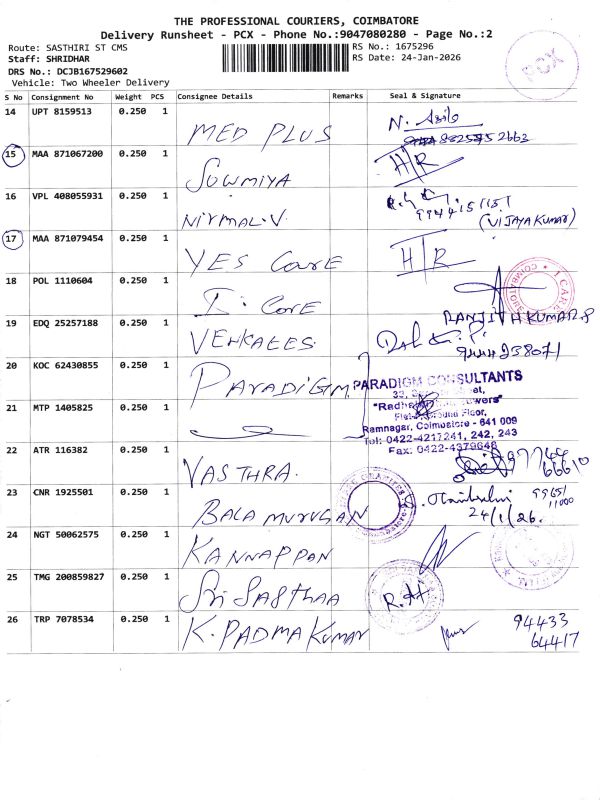 THE PROFESSIONAL COURIERS, COIMBATORE
Delivery Runsheet - PCX - Phone No.:9047080280 - Page No.:2
Route: SASTHIRI ST CMS RS No.: 1675296
Staff: SHRIDHAR RS Date: 24-Jan-2026
DRS No.: DCJB167529602
Vehicle: Two Wheeler Delivery
PCX
S No Consignment No Weight PCS Consignee Details Remarks Seal & Signature
14 UPT 8159513 0.250 1 MED PLUS N.
15 MAA 871067200 0.250 1 SOWMIYA H/R
16 VPL 408055931 0.250 1 NIRMAL.V. 9944151151
(VIJAYAKUMAR)
17 MAA 871079454 0.250 1 YES CARE H/R
18 POL 1110604 0.250 1 I CARE
RANJITH KUMAR.P
19 EDQ 25257188 0.250 1 VENKATES
9444238071
20 KOC 62430855 0.250 1 PARADIGM
PARADIGM CONSULTANTS
Street,
Floor,
Ramnagar, Coimbatore - 641 009
Tel: 0422-4217241, 242, 243
Fax: 0422-4379648
21 MTP 1405825 0.250 1
22 ATR 116382 0.250 1 VASTHRA. 97744
66610
23 CNR 1925501 0.250 1 BALAMURUGAN
24/1/26.
99651
11000
24 NGT 50062575 0.250 1 KANNAPPAN
25 TMG 200859827 0.250 1 Sri Sasthaa
26 TRP 7078534 0.250 1 K. PADMA KUMAR 94433
64417